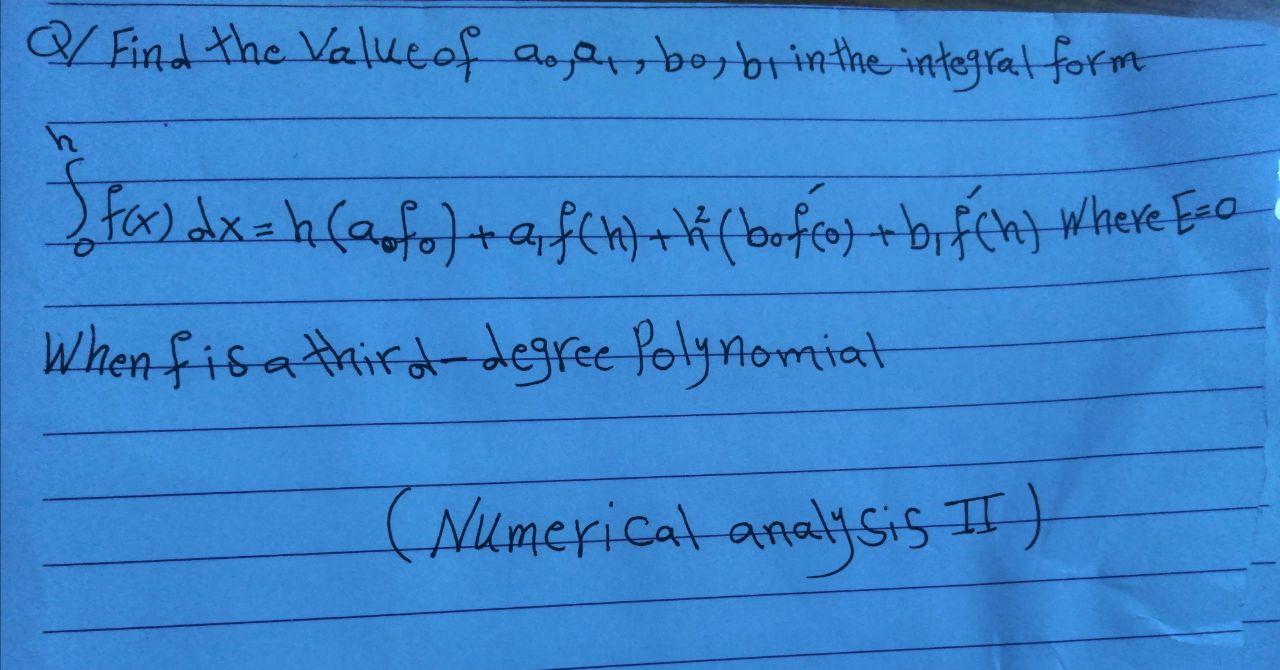 Q/ Find the Value of a₀,a₁, b₀, b₁ in the integral form
∫₀ʰ f(x) dx = h(a₀f₀) + a₁f(h) + h²(b₀f′(0) + b₁f′(h) Where E=0
When f is a third-degree Polynomial
(Numerical analysis II)